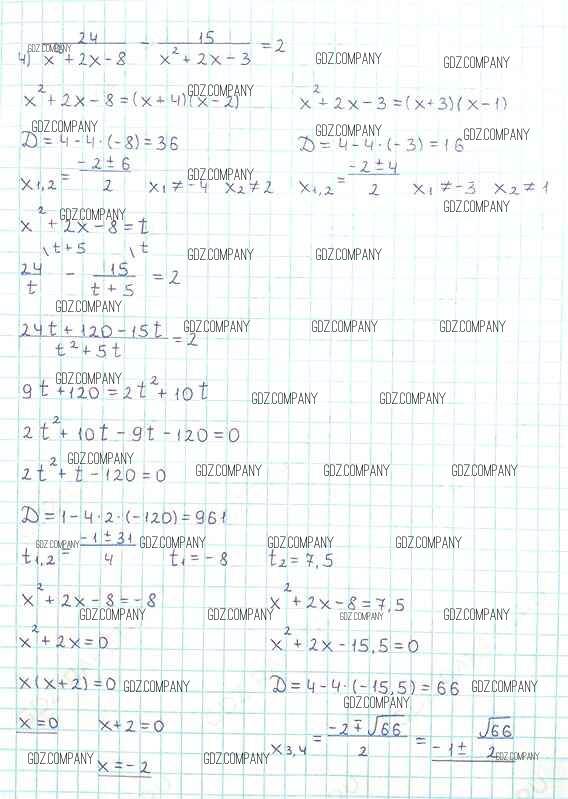 4) 24/(x²+2x-8) - 15/(x²+2x-3) = 2
GDZ.COMPANY GDZ.COMPANY GDZ.COMPANY
x²+2x-8=(x+4)(x-2) x²+2x-3=(x+3)(x-1)
GDZ.COMPANY
GDZ.COMPANY GDZ.COMPANY GDZ.COMPANY
D=4-4·(-8)=36 D=4-4·(-3)=16
x₁,₂=(-2±6)/2 x₁≠-4 x₂≠2 x₁,₂=(-2±4)/2 x₁≠-3 x₂≠1
GDZ.COMPANY
GDZ.COMPANY GDZ.COMPANY
x²+2x-8=t
\t+5 \t
GDZ.COMPANY GDZ.COMPANY
24/t - 15/(t+5) = 2
GDZ.COMPANY
(24t+120-15t)/(t²+5t)=2
GDZ.COMPANY GDZ.COMPANY GDZ.COMPANY
GDZ.COMPANY
9t+120=2t²+10t
GDZ.COMPANY GDZ.COMPANY
2t²+10t-9t-120=0
GDZ.COMPANY
2t²+t-120=0
GDZ.COMPANY GDZ.COMPANY GDZ.COMPANY
D=1-4·2·(-120)=961
GDZ.COMPANY GDZ.COMPANY GDZ.COMPANY
t₁,₂=(-1±31)/4 t₁=-8 t₂=7,5
x²+2x-8=-8 x²+2x-8=7,5
GDZ.COMPANY GDZ.COMPANY GDZ.COMPANY GDZ.COMPANY
x²+2x=0 x²+2x-15,5=0
x(x+2)=0 D=4-4·(-15,5)=66
GDZ.COMPANY GDZ.COMPANY
GDZ.COMPANY
x=0 x+2=0 x₃,₄=(-2∓√66)/2=-1±√66/2
GDZ.COMPANY GDZ.COMPANY GDZ.COMPANY
x=-2